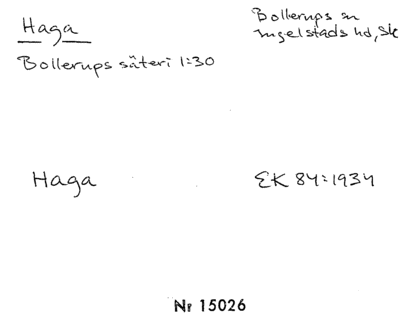 Haga
Bollerups säteri 1:30
Bollerups sn
Ingelstads hd, Sk
Haga
EK 84:1934
Nr 15026